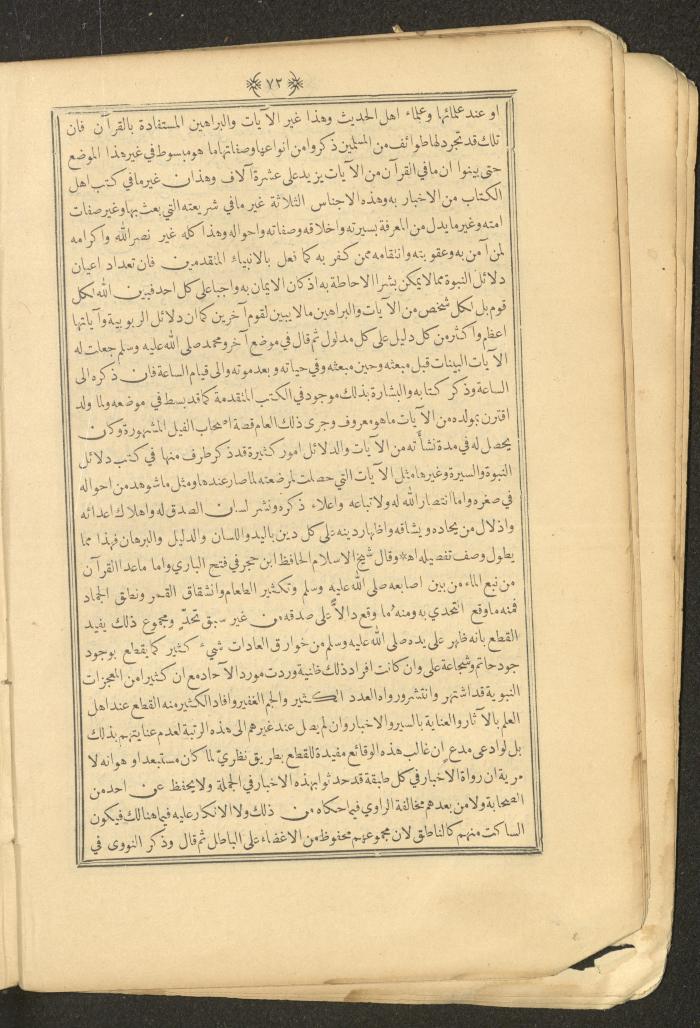 ﴿٧٢﴾
او عند علمائها وعلماء اهل الحديث وهذا غير الآيات والبراهين المستفادة بالقرآن فان
تلك قد تجرد لها طوائف من المسلمين ذكروا من انواعها وصفاتها ما هو مبسوط في غير هذا الموضع
حتى بينوا ان ما في القرآن من الآيات يزيد على عشرة آلاف وهذان غير ما في كتب اهل
الكتاب من الاخبار به وهذه الاجناس الثلاثة غير ما في شريعته التي بعث بها وغير صفات
امته وغير ما يدل من المعرفة بسيرته واخلاقه وصفاته واحواله وهذا كله غير نصر الله واكرامه
لمن آمن به وعقوبته وانتقامه ممن كفر به كما فعل بالانبياء المتقدمين فان تعداد اعيان
دلائل النبوة مما لا يمكن بشرا الاحاطة به اذ كان الايمان به واجبا على كل احد فيبين الله لكل
قوم بل لكل شخص من الآيات والبراهين ما لا يبين لقوم آخرين كما ان دلائل الربوبية وآياتها
اعظم واكثر من كل دليل على كل مدلول ثم قال في موضع آخر ومحمد صلى الله عليه وسلم جعلت له
الآيات البينات قبل مبعثه وحين مبعثه وفي حياته وبعد موته والى قيام الساعة فان ذكره الى
الساعة وذكر كتابه والبشارة بذلك موجود في الكتب المتقدمة كما قد بسط في موضعه ولما ولد
اقترن بمولده من الآيات ما هو معروف وجرى ذلك العام قصة اصحاب الفيل المشهورة وكان
يحصل له في مدة نشأته من الآيات والدلائل امور كثيرة قد ذكر طرف منها في كتب دلائل
النبوة والسيرة وغيرها مثل الآيات التي حصلت لمرضعته لما صار عندها ومثل ما شوهد من احواله
في صغره واما انتصار الله له ولاتباعه واعلاء ذكره ونشر لسان الصدق له واهلاك اعدائه
واذلال من يحاده ويشاقه واظهار دينه على كل دين باليد واللسان والدليل والبرهان فهذا مما
يطول وصف تفصيله اه* وقال شيخ الاسلام الحافظ ابن حجر في فتح الباري واما ما عدا القرآن
من نبع الماء من بين اصابعه صلى الله عليه وسلم وتكثير الطعام وانشقاق القمر ونطق الجماد
فمنه ما وقع التحدي به ومنه ما وقع دالاً على صدقه من غير سبق تحدّ ومجموع ذلك يفيد
القطع بانه ظهر على يده صلى الله عليه وسلم من خوارق العادات شيء كثير كما يقطع بوجود
جود حاتم وشجاعة على وان كانت افراد ذلك ظنية وردت مورد الآحاد مع ان كثيرا من المعجزات
النبوية قد اشتهر وانتشر ورواه العدد الكثير والجم الغفير وافاد الكثير منه القطع عند اهل
العلم بالآثار والعناية بالسير والاخبار وان لم يصل عند غيرهم الى هذه الرتبة لعدم عنايتهم بذلك
بل لو ادعى مدع ان غالب هذه الوقائع مفيدة للقطع بطريق نظريّ لما كان مستبعدا وهو انه لا
مرية ان رواة الاخبار في كل طبقة قد حدثوا بهذه الاخبار في الجملة ولا يحفظ عن احد من
الصحابة ولا من بعدهم مخالفة الراوي فيما حكاه من ذلك ولا الانكار عليه فيما هنالك فيكون
الساكت منهم كالناطق لان مجموعهم محفوظ من الاغضاء على الباطل ثم قال وذكر النووى في